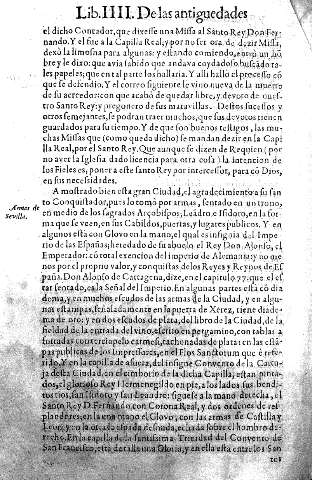 Lib. IIII. De las antiguedades
el dicho Contador, que diuesse vna Missa al Santo Rey Don Fer-
nando. Y el fue a la Capilla Real, y por no ser ora de dezir Missa,
dexò la limosna para algunas: y estando comiendo, entrò vn hõ
bre y le dixo: que auia sabido que andaua coydadoso buscãdo ta-
les papeles; que en tal parte los hallaria. Y alli hallò el processo cõ
que se defendio. Y el correo siguiente le vino nueua de la muerte
de su acreedor: con que acabò de quedar libre, y deuoto de nues-
tro Santo Rey: y pregonero de sus marauillas. Destos sucessos y
otros semejantes, se podran traer muchos, que sus deuotos tienen
guardados para su tiempo. Y de que son buenos testigos, las mu-
chas Missas que (como queda dicho) se mandan dezir en la Capi
lla Real, por el Santo Rey. Que aunque se dizen de Requien (por
no auer la Iglesia dado licencia para otra cosa) la intencion de
los Fieles es, poner a este santo Rey por intercessor, para cõ Dios,
en sus necessidades.
A mostrado bien esta gran Ciudad, el agradecimiento a su san
Armas de
Seuilla.
to Conquistador, pues lo tomò por armas, sentado en vn trono,
en medio de los sagrados Arçobispos, Leandro e Isidoro, en la for-
ma que se veen, en sus Cabildos, puertas, y lugares publicos. Y en
algunos està con Glouo en la mano, el qual es insignia del Impe-
rio de las Españas; heredado de su abuelo el Rey Don Alonso, el
Emperador: cõ total exencion del imperio de Alemania y no me
nos por el proprio valor, y conquistas de los Reyes y Reynos de Es-
paña. Don Alonso de Cartagena, dize, en el capitulo 77. que el es-
tar sentado, es la Señal del Imperio. En algunas partes està cõ dia
dema, y en muchos escudos de las armas de la Ciudad, y en algu-
nas estampas, señaladamente en la puerta de Xerez, tiene diade-
ma de oro; y en dos escudos de plata, del libro de la Ciudad, de la
fieldad de la entrada del vino, escrito en pergamino, con tablas a
forradas con terciopelo carmesi, tachonadas de plata: en las estã
pas publicas de los Impressores, en el Flos Sanctorum que è refe-
rido. Y en la capilla de afuera, del insigne Conuento de la Cartu-
ja desta Ciudad, en el imborio de la dicha Capilla, estan pinta-
dos, el glorioso Rey Hermenegildo en pie, a los lados sus bendi-
tos tios, san Isidoro y san Leandro: siguese a la mano derecha, el
Santo Rey D. Fernando, con Corona Real, y dos ordenes de res-
plandores, en la vna mano el Glouo, con las armas de Castilla y
Leon, y en la otra la espada desnuda, echada sobre el hombro de-
recho. En la capilla de la santissima Trinidad del Conuento de
San Francisco, està de talla vna Gloria, y en ella està entre los San
tos